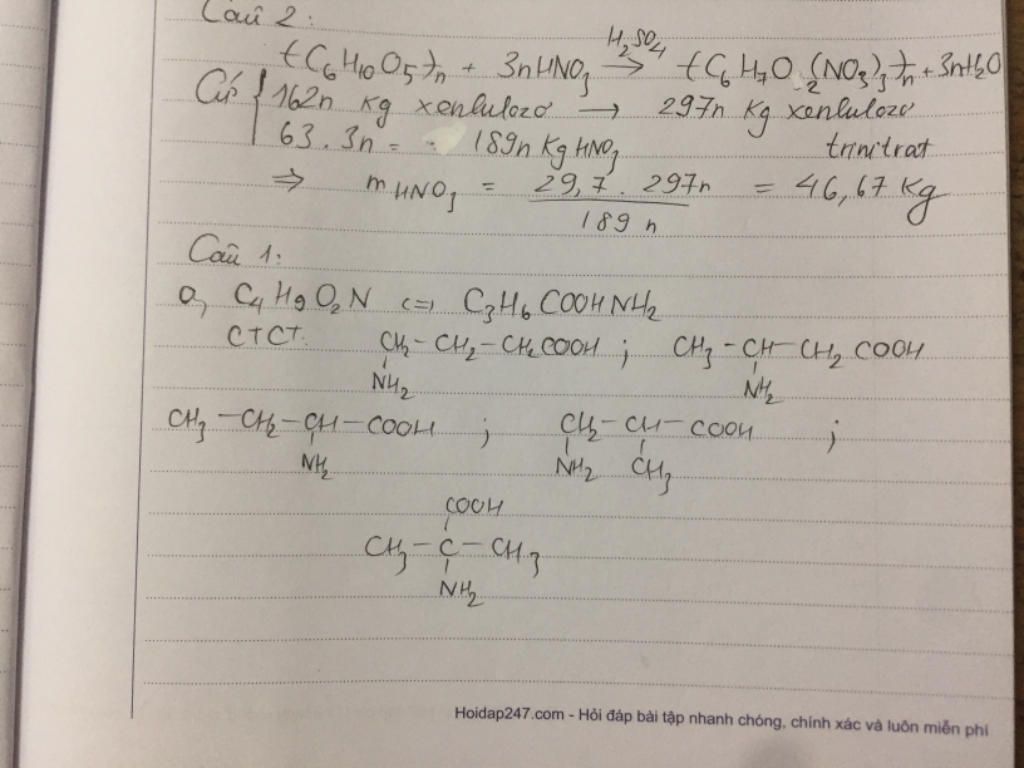 Câu 2:
(C6H10O5)n + 3nHNO3 H2SO4→ (C6H7O2(NO3)3)n + 3nH2O
Cứ { 162n kg xenlulozo → 297n kg xenlulozo
63.3n = 189n kg HNO3 trinitrat
⇒ mHNO3 = 29,7.297n / 189n = 46,67 kg
Câu 1:
a, C4H9O2N <=> C3H6COOHNH2
CTCT: CH2-CH2-CH2COOH ; CH3-CH-CH2COOH
NH2 NH2
CH3-CH2-CH-COOH ; CH2-CH-COOH ;
NH2 NH2 CH3
COOH
CH3-C-CH3
NH2
Hoidap247.com - Hỏi đáp bài tập nhanh chóng, chính xác và luôn miễn phí